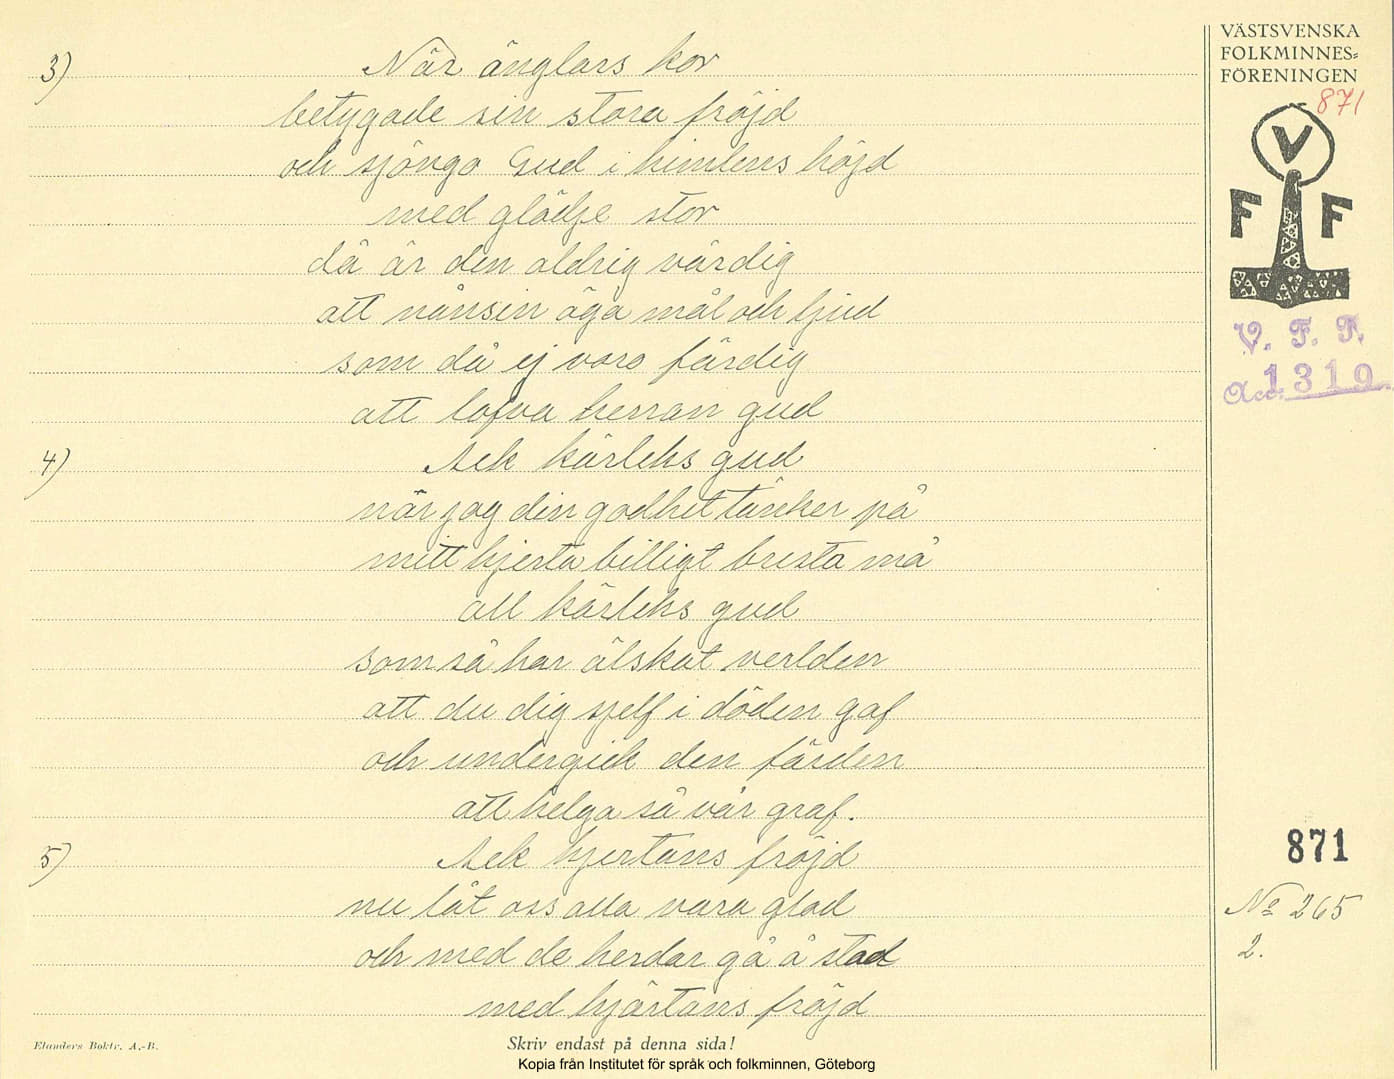 VÄSTSVENSKA
FOLKMINNES=
FÖRENINGEN
871
V
F F
V. F. F.
Acc. 1319.
3) När änglars kor
betygade sin stora fröjd
och sjöngo Gud i himlens höjd
med glädje stor
då är den aldrig värdig
att nånsin äga mål och ljud
som då ej voro färdig
att lofva herran gud
4) Ack kärleks gud
när jag din godhet tänker på
mitt hjerta billigt brista må
all kärleks gud
som så har älskat verlden
att du dig sjelf i döden gaf
och undergick den färden
att helga så vår graf.
5) Ack hjertans fröjd
nu låt oss alla vara glad
och med de herdar gå å stad
med hjärtans fröjd
871
No 265
2.
Elanders Boktr. A.-B.
Skriv endast på denna sida!
Kopia från Institutet för språk och folkminnen, Göteborg